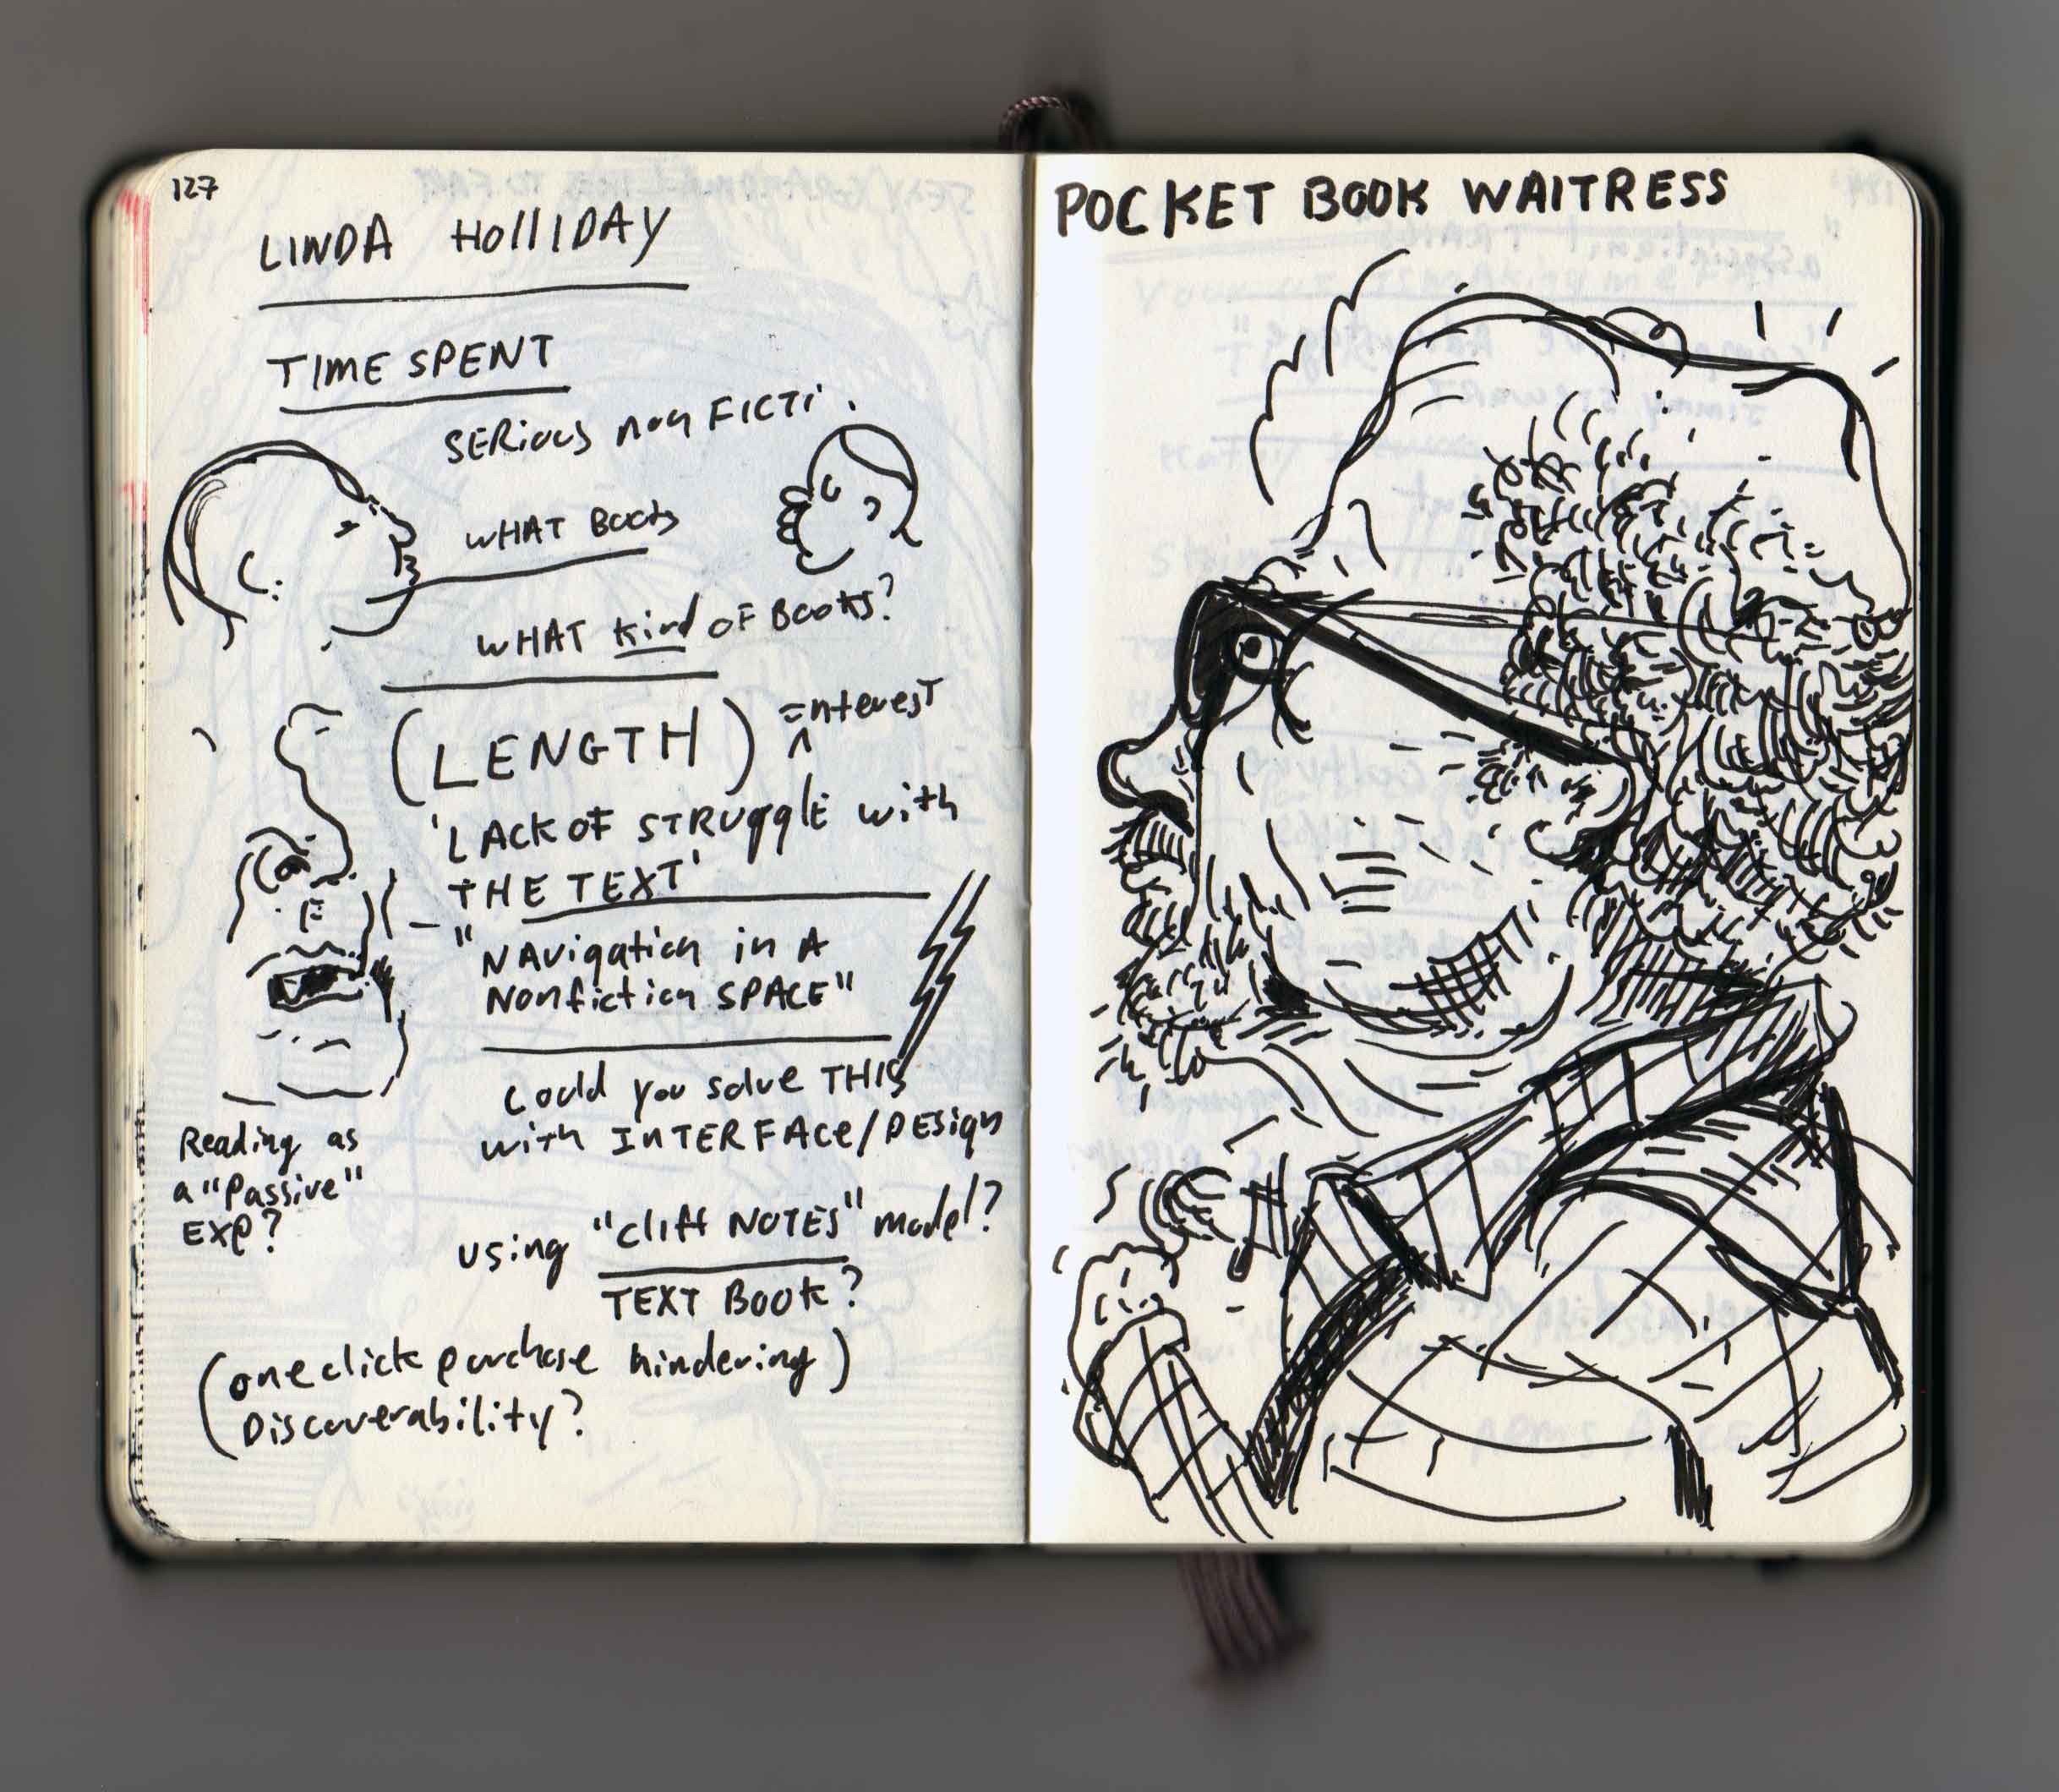 127
LINDA HOllIDAY
TIME SPENT
SERious non FICTI.
WHAT Books
WHAT kind OF Books?
(LENGTH) = interest
'LACK OF STRUggLE with
THE TEXT'
"NAvigation in A
Nonfiction SPACE"
Could you solve THIS
with InTERFACe/DEsign
using "Cliff NOTES" model?
TEXT Book?
Reading as
a "Passive"
EXP?
(one click purchase hindering)
Discoverability?
POCKET BOOK WAITRESS